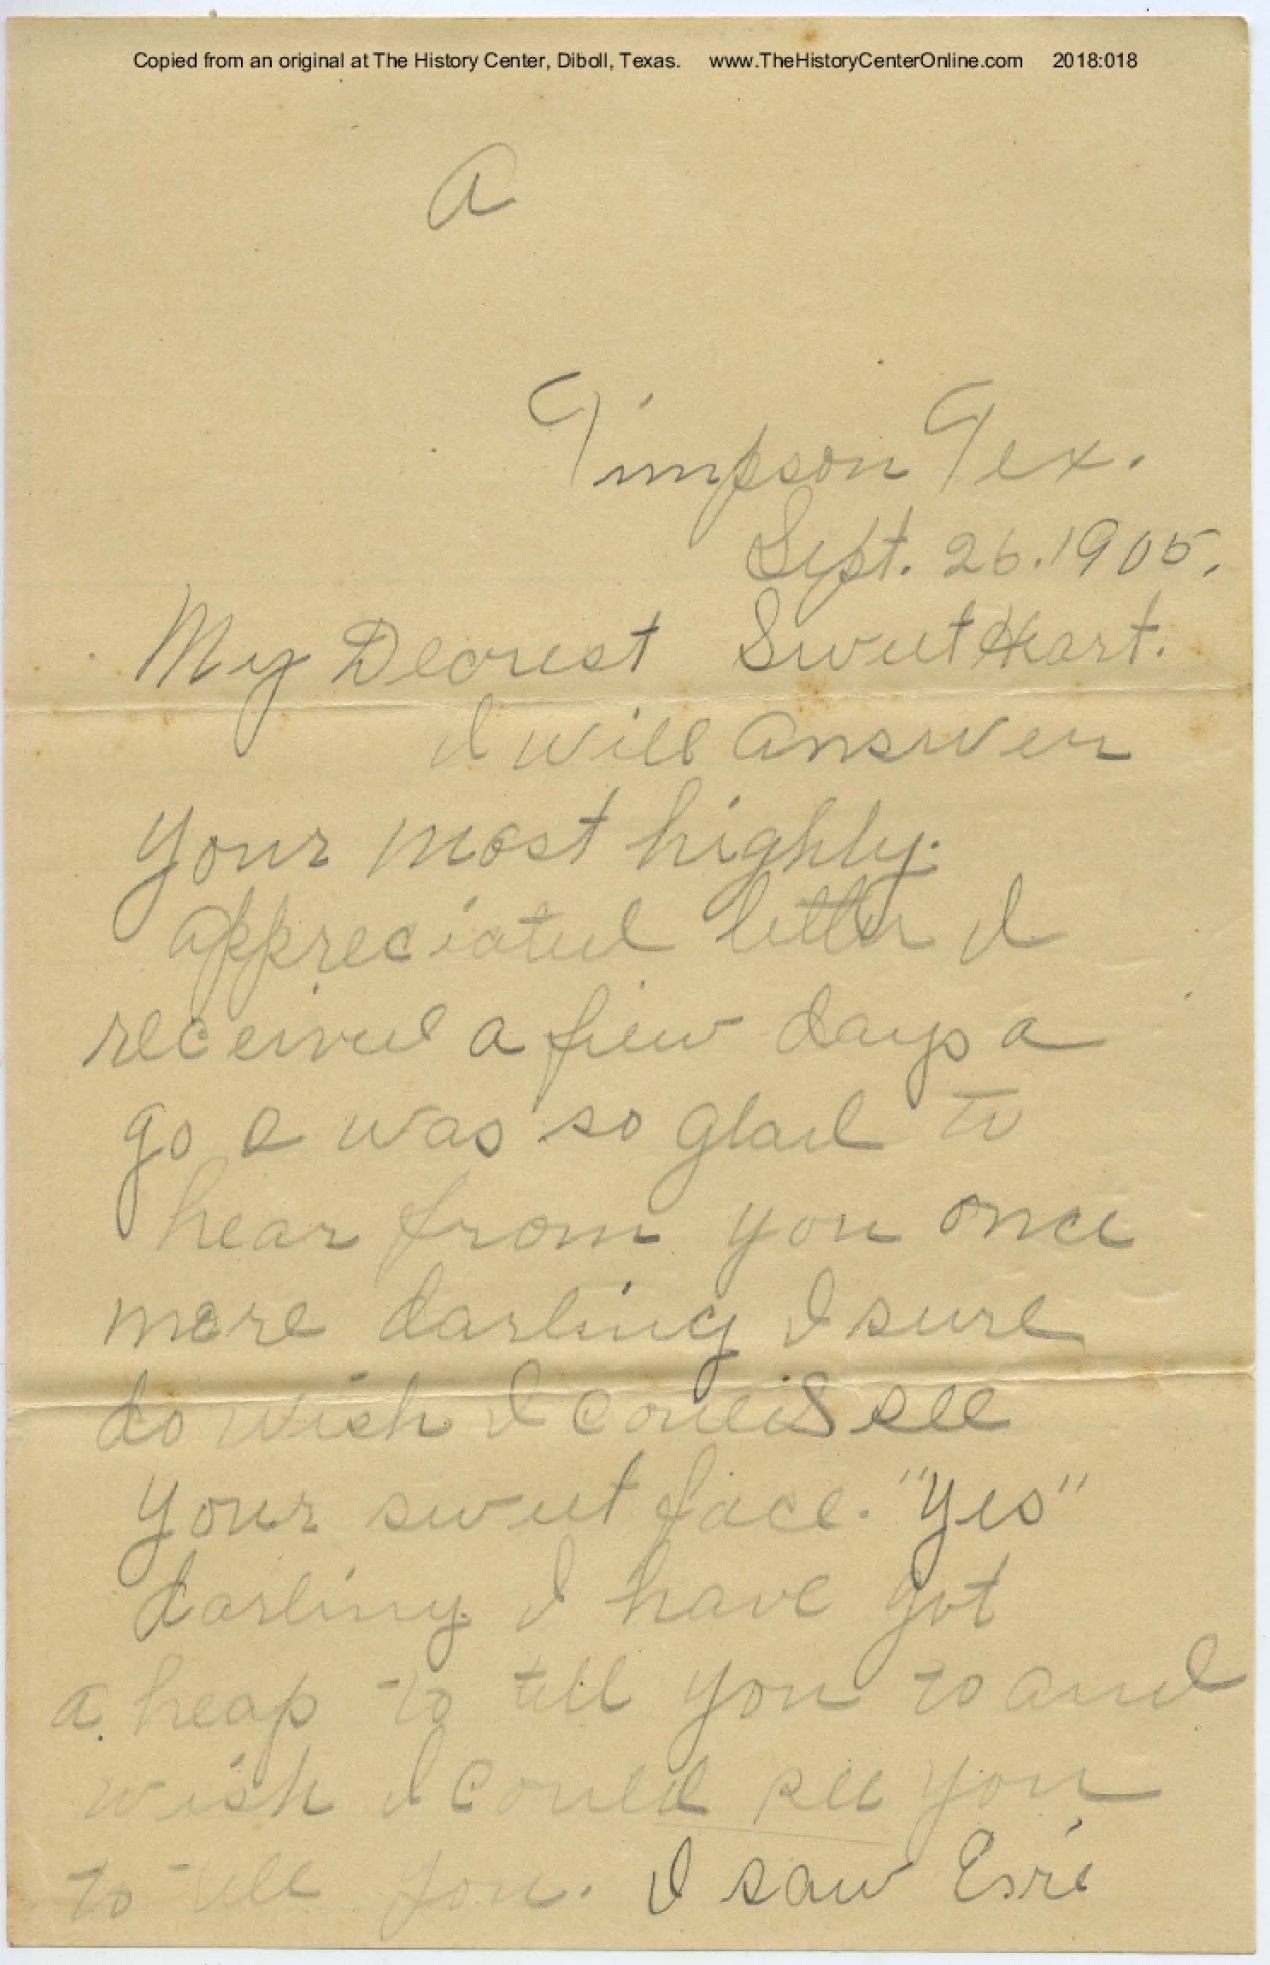 Copied from an original at The History Center, Diboll, Texas. www.TheHistoryCenterOnline.com 2018:018
A
Timpson Tex.
Sept. 26. 1905.
My Dearest Sweet Heart.
I will answer
your most highly.
appreciated letter I
received a few days a
go & was so glad to
hear from you once
more darling I sure
do wish I could see
your sweet face. "Yes"
darling. I have got
a heap to tell you to and
wish I could see you
to tell you. I saw